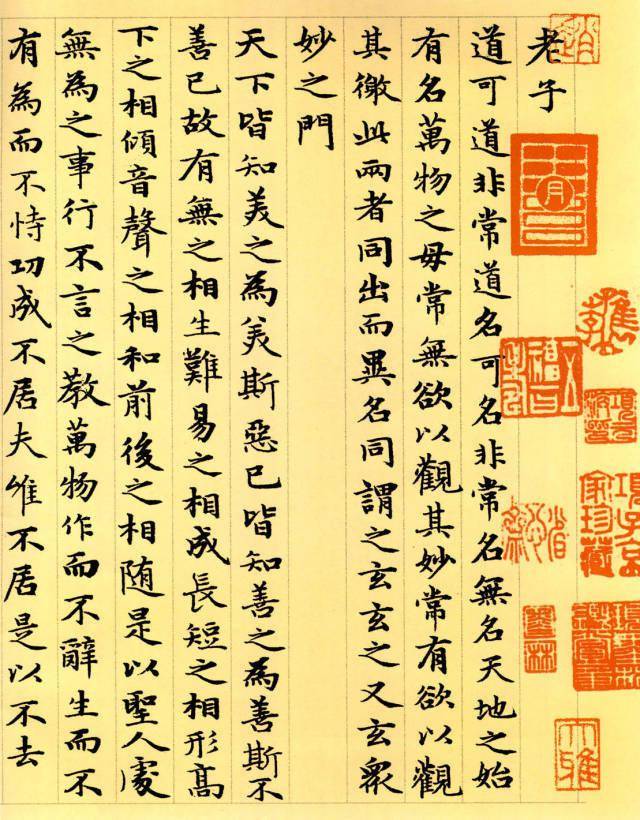 老子
道可道非常道名可名非常名無名天地之始
有名萬物之母常無欲以觀其妙常有欲以觀
其徼此兩者同出而異名同謂之玄玄之又玄衆
妙之門
天下皆知美之為美斯惡已皆知善之為善斯不
善已故有無之相生難易之相成長短之相形高
下之相傾音聲之相和前後之相随是以聖人處
無為之事行不言之教萬物作而不辭生而不
有為而不恃功成不居夫惟不居是以不去
項子京
家珍藏
墨林